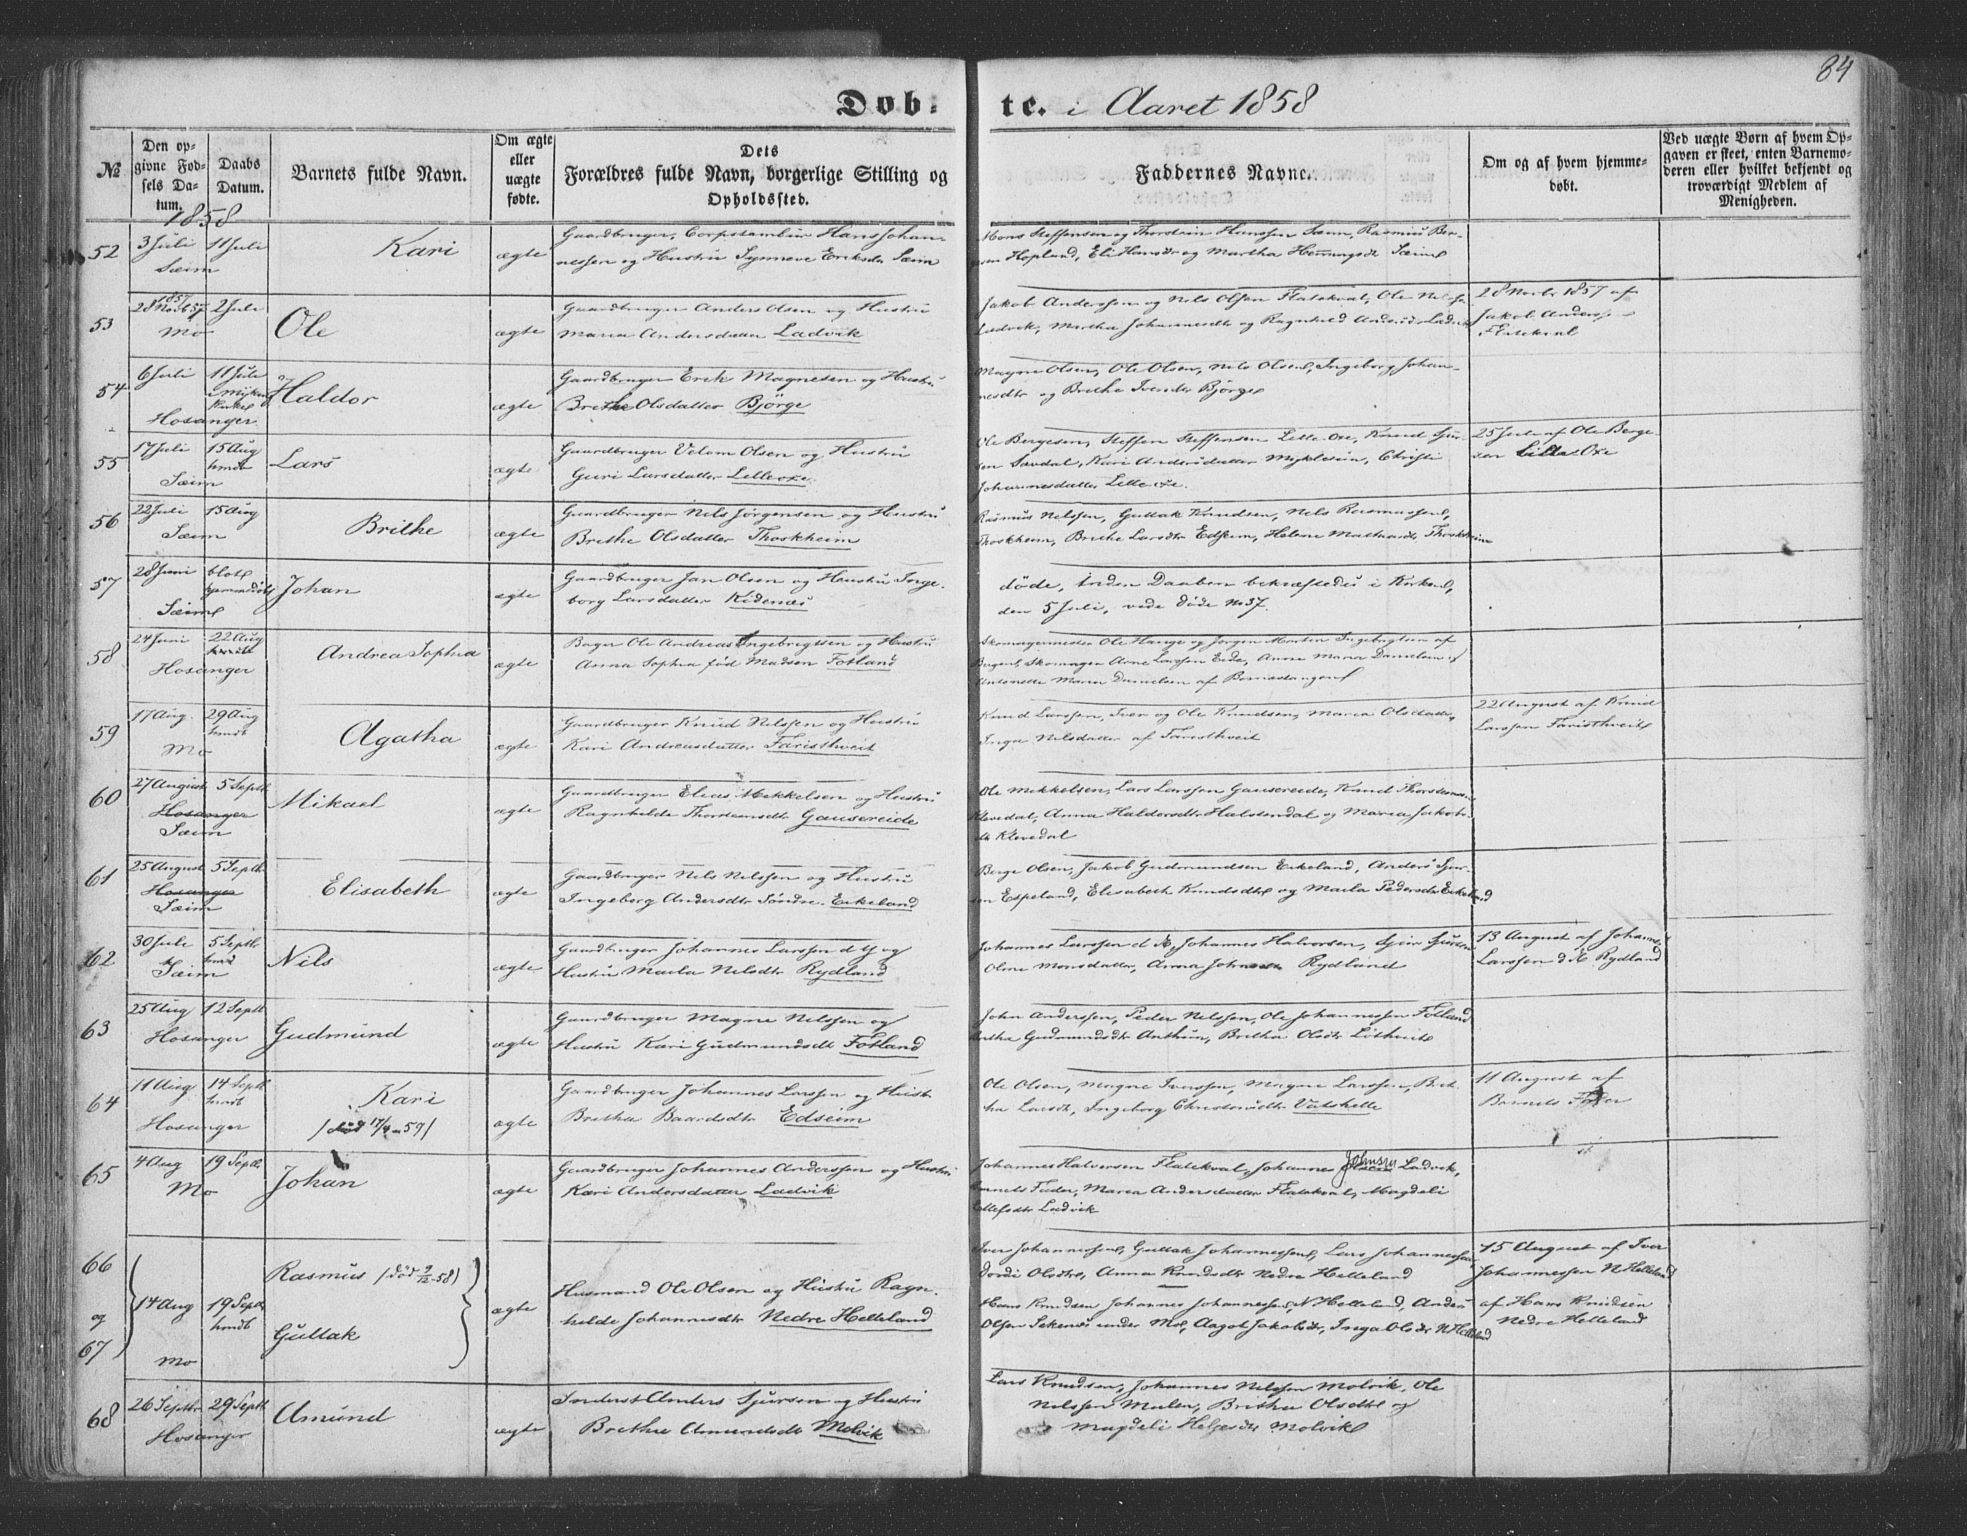 84
Døb- te. i Aaret 1858
№ | Den op-givne Fød-sels Da-tum. | Daabs Datum. | Barnets fulde Navn. | Om ægte eller uægte fødte. | Dets Forældres fulde Navn, borgerlige Stilling og Opholdssted. | Faddernes Navne. | Om og af hvem hjemme-døbt. | Ved uægte Børn af hvem Op-gaven er skeet, enten Barnemo-deren eller hvilket bekjendt og troværdigt Medlem af Menigheden.
1858
52 3 Juli 11 Juli Kari ægte Gaardbruger, Hans Johan-
Sæim nessen og Hustru Synneve Eriksdr Sæim
Mons Steffensen og Thorstein Hanssen Sæim, Rasmus Ber-
Hopland, Eli Hansdr og Martha Hemmingsdr Sæim
53 1857 28 Novb 57 2 Juli Ole ægte Gaardbruger Anders Olsen og Hustru
Mo Maria Andersdatter Ladvik
Jakob Anderssen og Nils Olsen Flatekval, Ole
Ladvik, Martha Johannesdtr og Ragnhild Andersdr Ladvik
28 Novbr 1857 af
Jakob Anderssen
Flatekval
54 6 Juli 11 Juli i Kirke Haldor ægte Gaardbruger Erik Magnesen og Hustru
Hosanger Brethe Olsdatter Bjørge
Magne Olsen, Ole Olsen, Nils Olsen, Ingeborg Johan-
nesdtr og Brithe Iversdtr Bjørge
55 17 Juli 15 Aug hmdt Lars ægte Gaardbruger Velom Olsen og Hustru
Sæim Guri Larsdatter Lilleoxe
Ole Bergesen, Steffen Steffensen Lille Oxe, Knud Sjur-
sen Sævdal, Kari Andersdatter Myklesein, Christi
Johannesdatter Lille oxe.
25 Juli af Ole Berge-
sen Lille-Oxe
56 22 Juli 15 Aug Brithe ægte Gaardbruger Nils Jørgensen og Hustru
Sæim Brethe Olsdatter Thoskheim
Rasmus Nelssen, Guttak Knudsen, Nels Rasmussen,
Thoskheim, Brithe Larsdtr Edseim, Helene Thoskheim
57 28 Juni blot hjemmedøbt Johan ægte Gaardbruger Jan Olsen og Hustru Inge-
Sæim borg Larsdatter Kidenæs
døde, inden Daaben bekræftedes i Kirken,
den 5 Juli, vide døde No 37.
58 24 Juni 22 Aug Andrea Sophia ægte Bager Ole Andreas Ingebregtsen og Hustru
Hosanger Anna Sophia fød Madsen Fotland
Skomagermester Ole Hauge og Jørgen Martin Ingebrigtsen af
Bergen, Skomager Arne Larssen Eide, Anne Maria Danielsen og
Maria Danielsen af
59 17 Aug 29 Aug hmdt Agatha ægte Gaardbruger Knud Nelssen og Hustru
Mo Kari Andreasdatter Faristhveit
Knud Larssen, Iver og Ole Knudsen, Maria Olsdatter,
Inga Nelsdatter af Faristhveit
22 August af Knud
Larssen Faristhveit
60 27 August 5 Septb Mikael ægte Gaardbruger Elias Mekkelsen og Hustru
Hosanger Ragnhilde Thorsteinsdtr Gausereide
Sæim
Ole Mekkelsen, Lars Larssen Gausereide, Knud
Klevedal, Anna Haldorsdtr Halstendal og Maria Jakobs-
dtr Klevedal
61 25 August 5 Septb Elisabeth ægte Gaardbruger Nels Nelssen og Hustru
Hosanger Ingeborg Andersdtr Søndre Eikeland
Sæim
Berge Olsen, Jakob Gudmundsen Eikeland, Anders Sjur-
sen Espeland, Elisabeth Knudsdtr og Marta Pedersdtr Eikeland
62 30 Juli 5 Septb hmd Nils ægte Gaardbruger Johannes Larssen d Y og
Sæim Hustru Marta Nelsdtr Rydland
Johannes Larssen d Æ, Johannes Halvorsen,
Oline Monsdatter, Anna Rydland
13 August af Johannes
Larssen d Æ Rydland
63 25 Aug 12 Septb Gudmund ægte Gaardbruger Magne Nelssen og
Hosanger Hustru Kari Gudmundsdtr Fotland
John Anderssen, Peder Nelssen, Ole Johannessen Fotland
Gudmundsdtr Britha Olsdtr
64 11 Aug 14 Septb hmdt Kari ægte Gaardbruger Johannes Larssen og Hustr
Hosanger /død 17/4-59/ Bretha Baardsdtr Edseim
Ole Olsen, Magne Iverssen, Magne Larssen, Bret-
ha Larsdtr, Ingeborg Vatshelle
11 August af
Barnets Fader
65 4 Aug 19 Septb Johan ægte Gaardbruger Johannes Anderssen og Hustru
Mo Kari Andersdatter Ladvik
Johannes Halversen Flatekval, Johannes Johnsen Ladvik,
Barnets Fader, Maria Andersdatter Flatekval, Magdeli
Ladvik
66 og 67 14 Aug 19 Septb hmdt Rasmus /død 9/12-58/ Guttak ægte
Mo Husmand Ole Olsen og Hustru Ragn-
helde Johannesdtr Nedre Helleland
Iver Johannessen, Guttak Johannessen, Lars Johannessen
Dordi Olsdtr, Anna Knudsdtr Nedre Helleland
Hans Knudsen Johannes Johannessen, N Helleland, Anders
Olsen under Mo, Aagot Jakobsdtr, Inga Olsdtr N Helleland
15 August af Iver
Johannessen N Helleland
af Hans Knudsen
Nedre Helleland
68 26 Septbr 29 Septb Amund ægte Inderst Anders Sjursen og Hustru
Hosanger Brethe Amundsdtr Molvik
Lars Knudsen, Johannes Nelssen Molvik, Ole
Nelssen Mælen, Britha Olsdtr og
Magdeli Helgesdtr Molvik